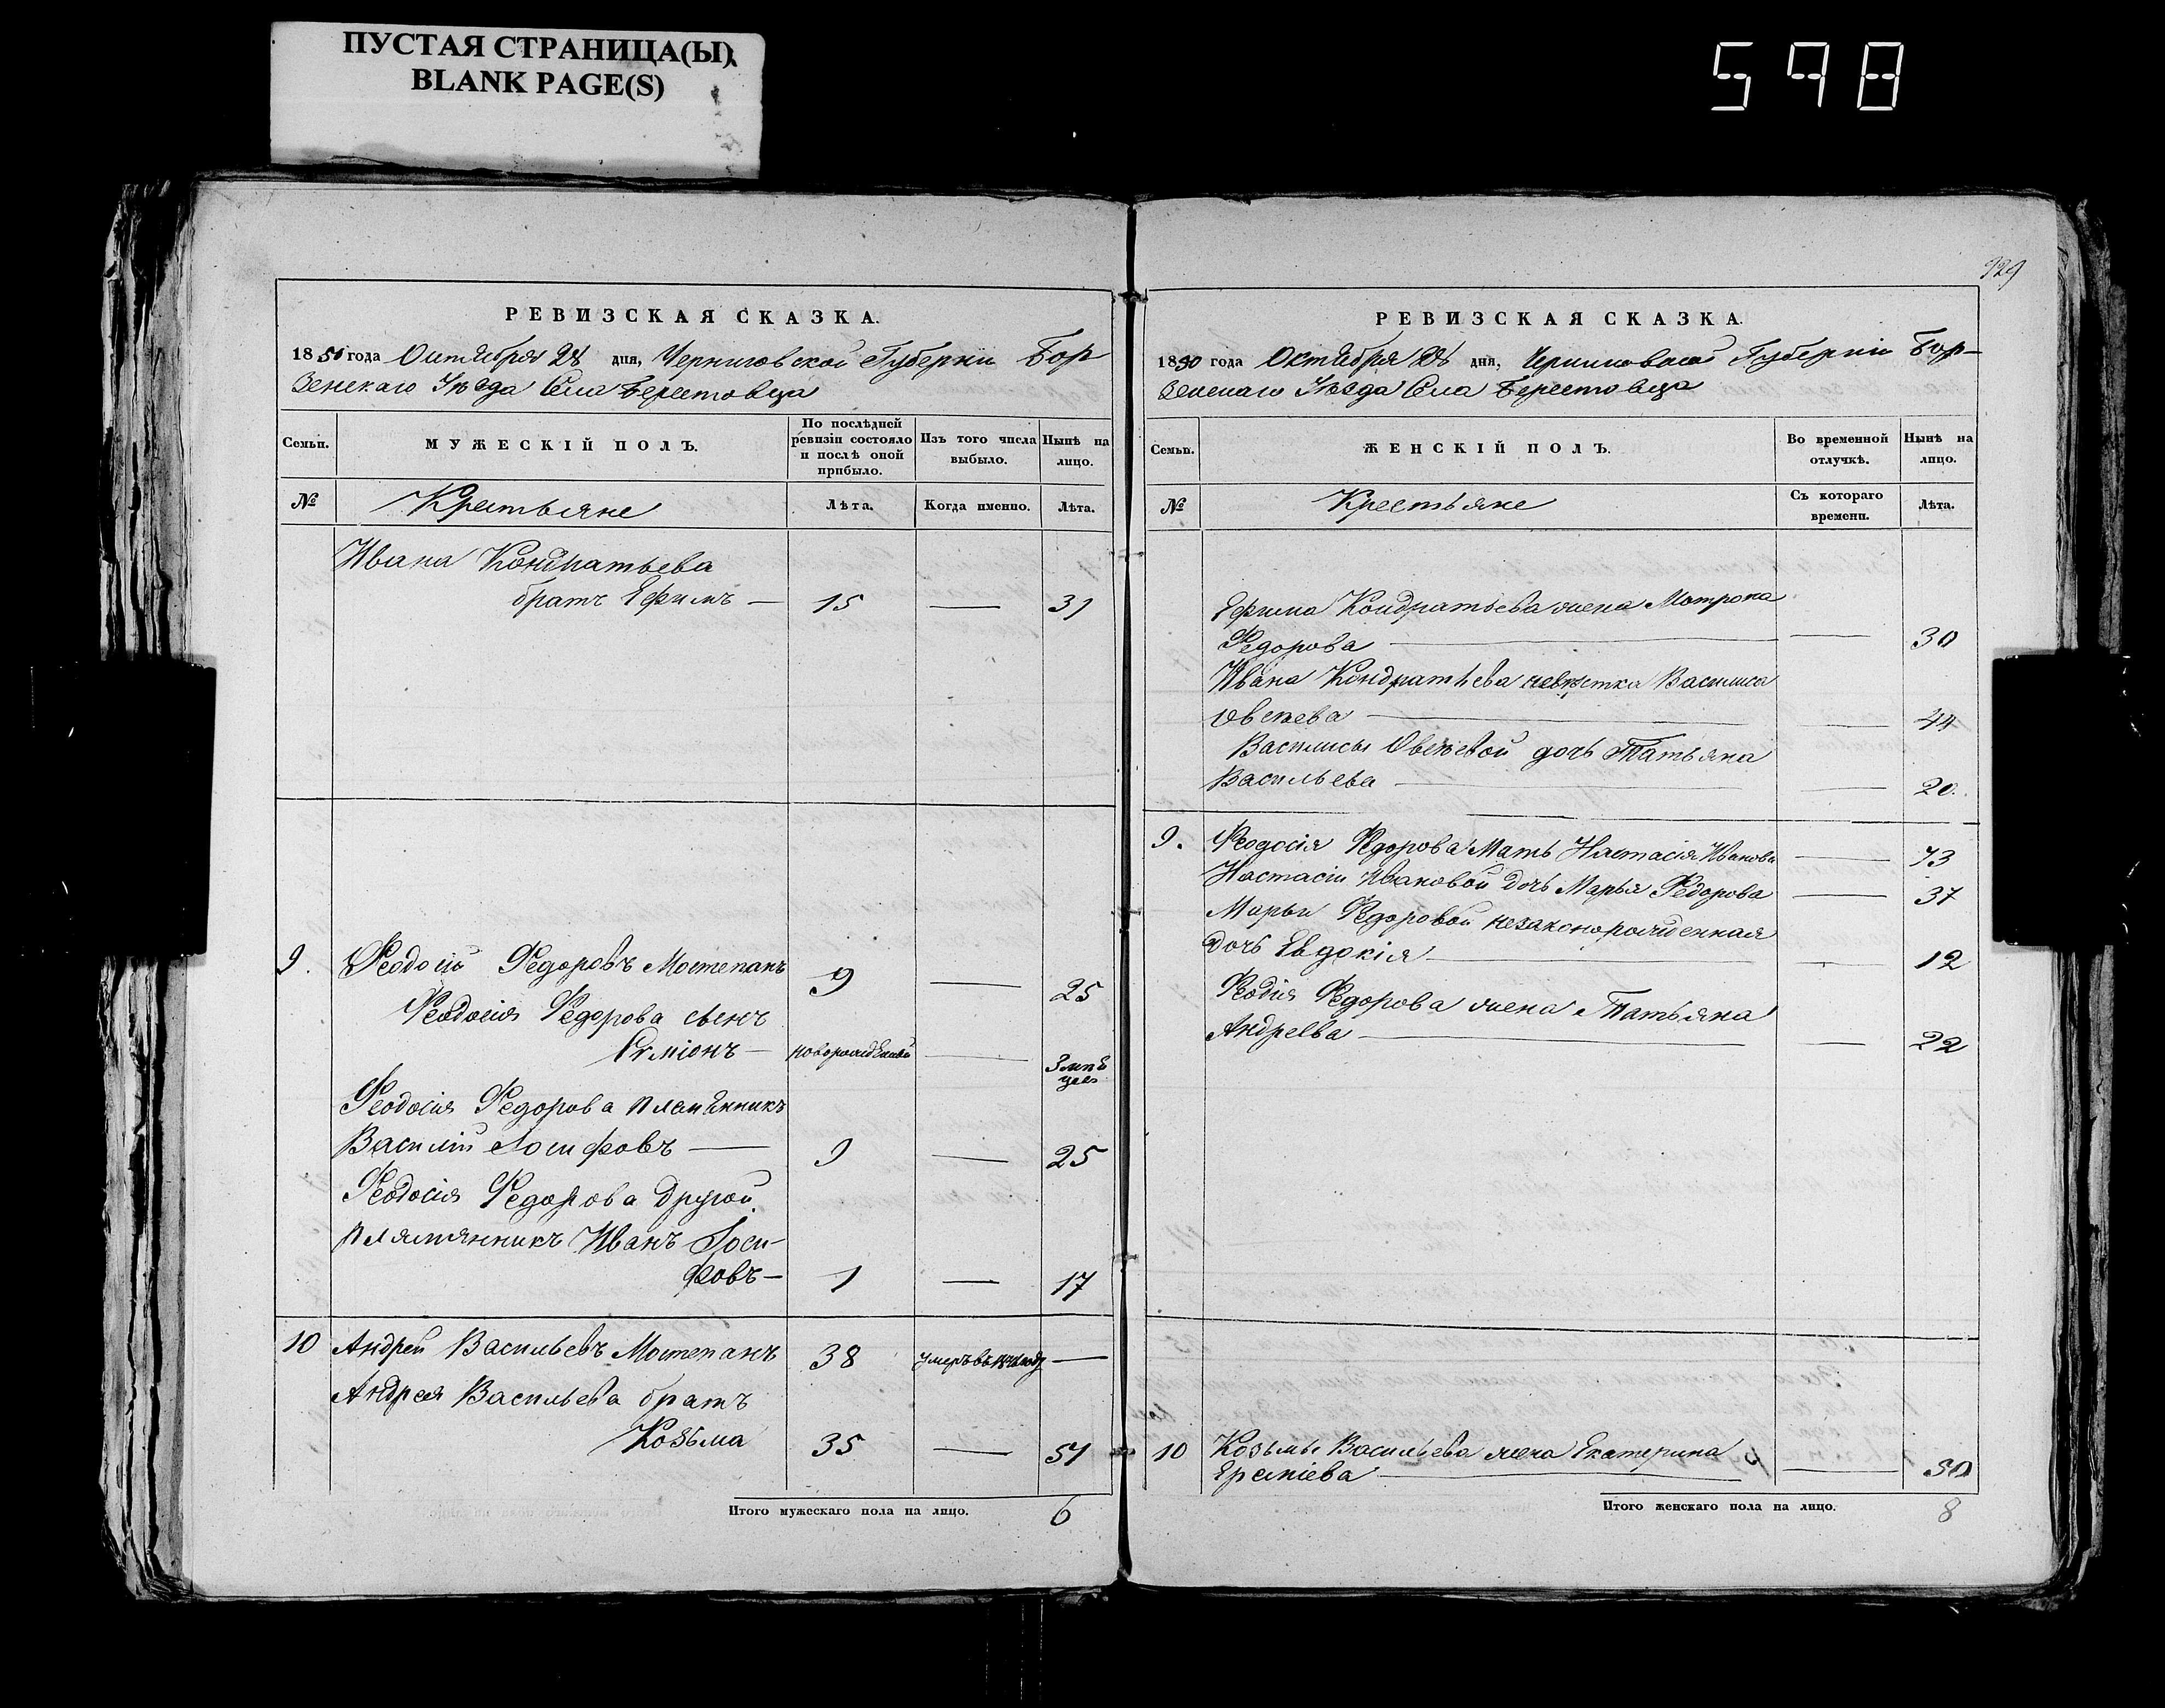 ПУСТАЯ СТРАНИЦА(Ы)
BLANK PAGE(S)
598
929
РЕВИЗСКАЯ СКАЗКА.
1850 года Октября 28 дня, Черниговской Губернии Бор
зенскаго Уѣзда Села Берестовца
Семьи.
МУЖЕСКІЙ ПОЛЪ.
По послѣдней
ревизіи состояло
и послѣ оной
прибыло.
Изъ того числа
выбыло.
Нынѣ на
лицо.
№
Крестьяне
Лѣта.
Когда именно.
Лѣта.
Ивана Кондратьева
братъ Ефимъ — 15 — 31
9. Феодосій Федоровъ Мостепанъ 9 — 25
Феодосія Федорова сынъ
новорожденный — 3 мѣс
Феодосія Федорова племянникъ
Василій Іосифовъ — 9 — 25
Феодосія Федорова Другой
плямянникъ Иванъ Іоси-
фовъ — 1 — 17
10 Андрей Васильевъ Мостепанъ 38 умеръ въ году —
Андрея Васильева братъ
Козьма 35 — 51
Итого мужескаго пола на лицо. 6
РЕВИЗСКАЯ СКАЗКА.
1850 года Октября 28 дня, Черниговской Губерніи Бор-
зенскаго Уѣзда Села Берестовца
Семьи.
ЖЕНСКІЙ ПОЛЪ.
Во временной
отлучкѣ.
Нынѣ на
лицо.
№
Крестьяне
Съ котораго
времени.
Лѣта.
Ефима Кондратьева жена Мотрона
Федорова — — 30
Ивана Кондратьева невѣстка Василиса
— — 44
Василисы дочь Татьяна
Васильева — — 20.
9. Феодосія Федорова Мать Настасія Иванова — 73
Настасіи Ивановой Дочь Марья Федорова — 37
Марьи Федоровой незаконорожденная
дочь Евдокія — — 12
Федорова жена Татьяна
Андреева — — 22
10 Козьмы Васильева жена Екатерина
— — 50
Итого женскаго пола на лицо. 8